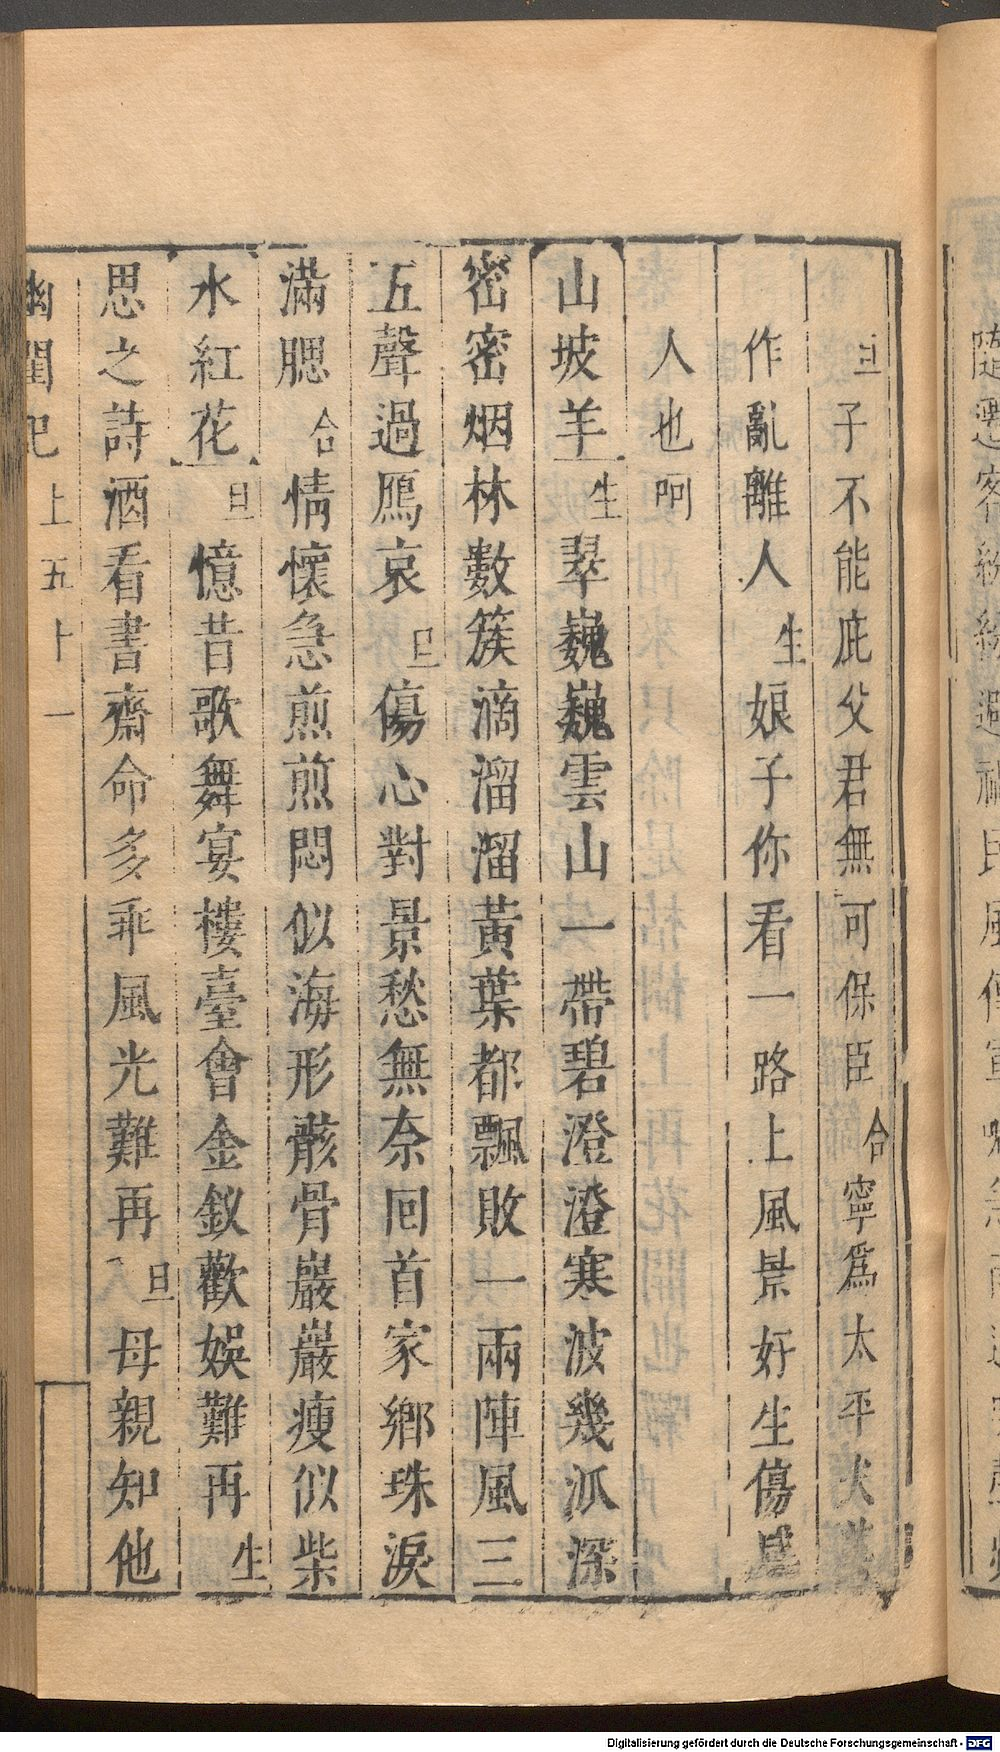 旦子不能庇父君無可保臣合寧爲太平犬
作亂離人生娘子你看一路上風景好生傷感
人也呵
山坡羊生翠巍巍雲山一帶碧澄澄寒波幾派深
密密烟林數簇滴溜溜黃葉都飄敗一兩陣風三
五聲過鴈哀旦傷心對景愁無奈回首家鄉珠淚
滿腮合情懷急煎煎悶似海形骸骨巖巖瘦似柴
水紅花旦憶昔歌舞宴樓臺會金釵歡娛難再生
思之詩酒看書齋命多乖風光難再旦母親知他
幽閨記上五十一
Digitalisierung gefördert durch die Deutsche Forschungsgemeinschaft - DFG